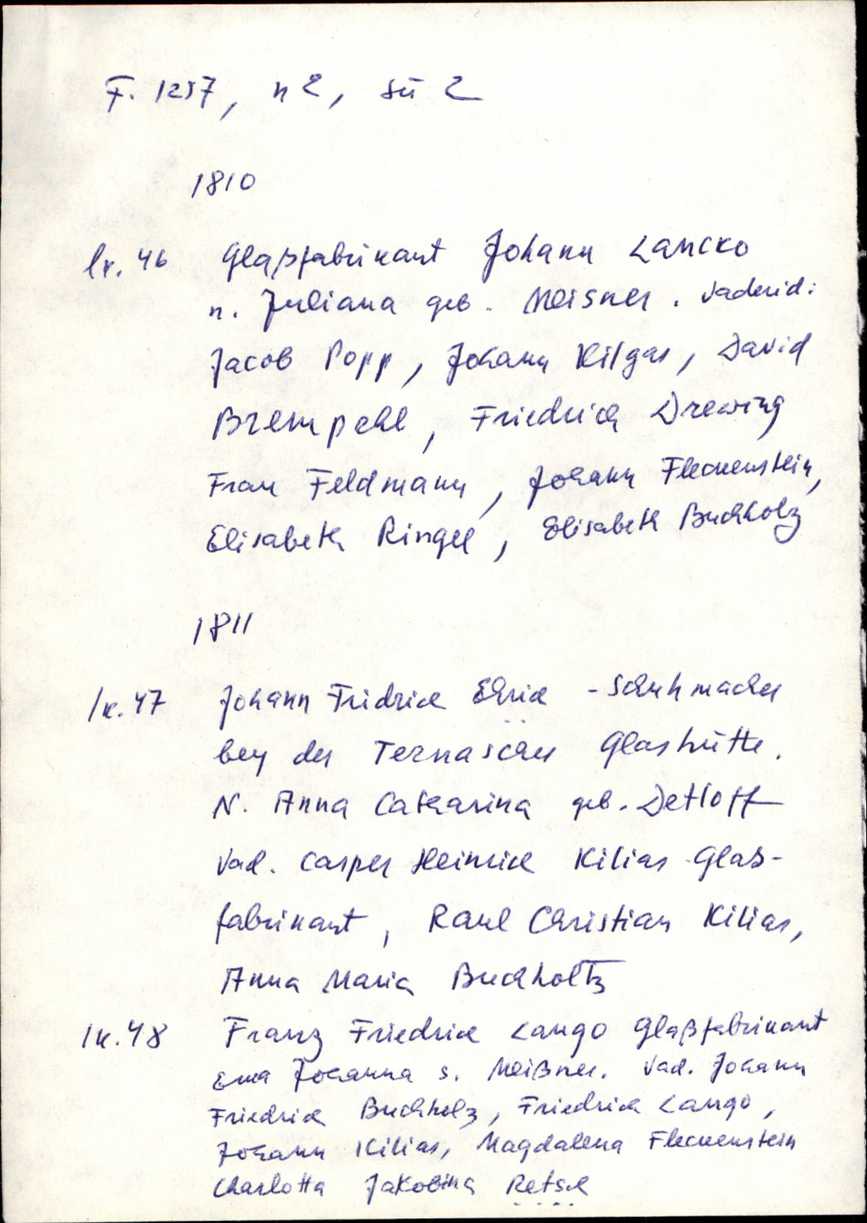 F. 1257, n 2, sü 2
1810
lk. 46 Glaßfabrikant Johann Lancko
n. Juliana geb. Meisner. Vaderid:
Jacob Popp, Johann Kilgas, David
Brempehl, Friedrich Drewing
Frau Feldmann, Johann Fleckenstein,
Elisabeth Ringel, Elisabeth Buchholz
1811
lk. 47 Johann Fridrich Ehrich - Schuhmacher
bey der Ternascher Glashütte.
N. Anna Catharina geb. Detloff
Vad. Casper Heinrich Kilias Glas-
fabrikant, Karl Christian Kilias,
Anna Maria Buchholtz
lk. 48 Franz Friedrich Lango Glaßfabrikant
Ema Johanna s. Meißner. Vad. Johann
Friedrich Buchholz, Friedrich Lango,
Johann Kilias, Magdalena Fleckenstein
Charlotta Jakobina Retsch